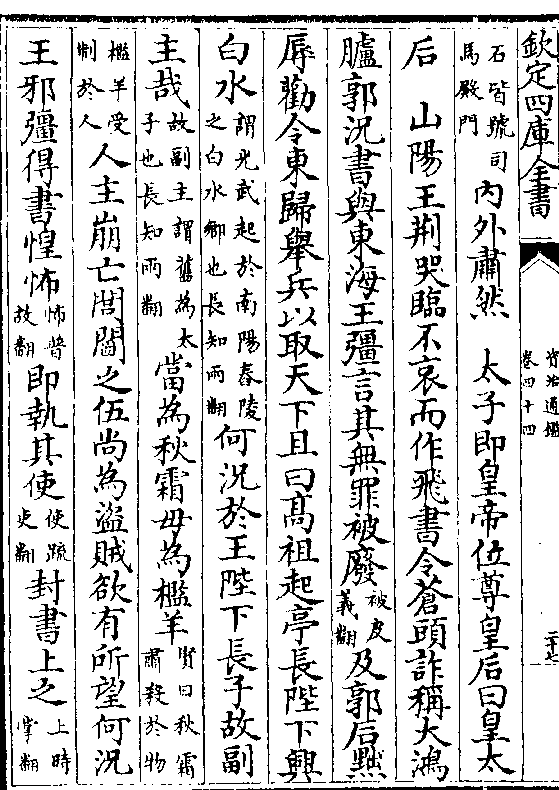 欽定四庫全書 資治通鑑 卷四十四
石皆號司馬殿門內外肅然 太子即皇帝位尊皇后曰皇太
后 山陽王荆哭臨不哀而作飛書令蒼頭詐稱大鴻
臚郭況書與東海王彊言其無罪被廢被皮義翻及郭后黜
辱勸令東歸舉兵以取天下且曰髙祖起亭長陛下興
白水謂光武起於南陽舂陵之白水鄉也長知兩翻何況於王陛下長子故副
主哉故副主謂舊為太子也長知兩翻當為秋霜毋為檻羊賢曰秋霜肅殺於物
檻羊受制於人人主崩亡閭閻之伍尚為盜賊欲有所望何況
王邪彊得書惶怖怖普故翻即執其使使疏吏翻封書上之上時掌翻